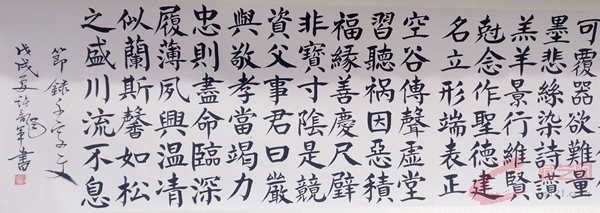 可覆器欲難量
墨悲絲染詩讃
羔羊景行維賢
尅念作聖德建
名立形端表正
空谷傳聲虛堂
習聽禍因惡積
福緣善慶尺璧
非寶寸陰是競
資父事君曰嚴
與敬孝當竭力
忠則盡命臨深
履薄夙興温凊
似蘭斯馨如松
之盛川流不息
節録千字文
戊戌夏許龍軍書